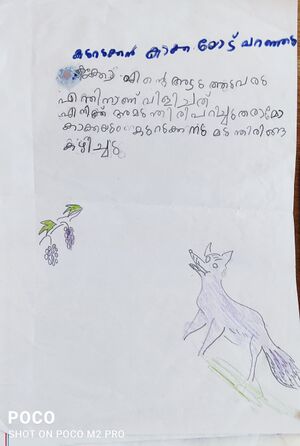 കുറുക്കൻ കാക്ക യോട് പറഞ്ഞു
നിന്റെ അടുത്തുവരു
എന്തിനാണ് വിളിച്ചത്
എനിക്ക് മുന്തിരി പറിച്ചുതരാമോ
കാക്കയും കുറുക്കനു മുന്തിരിങ്ങ
കഴിച്ചു
POCO
SHOT ON POCO M2 PRO